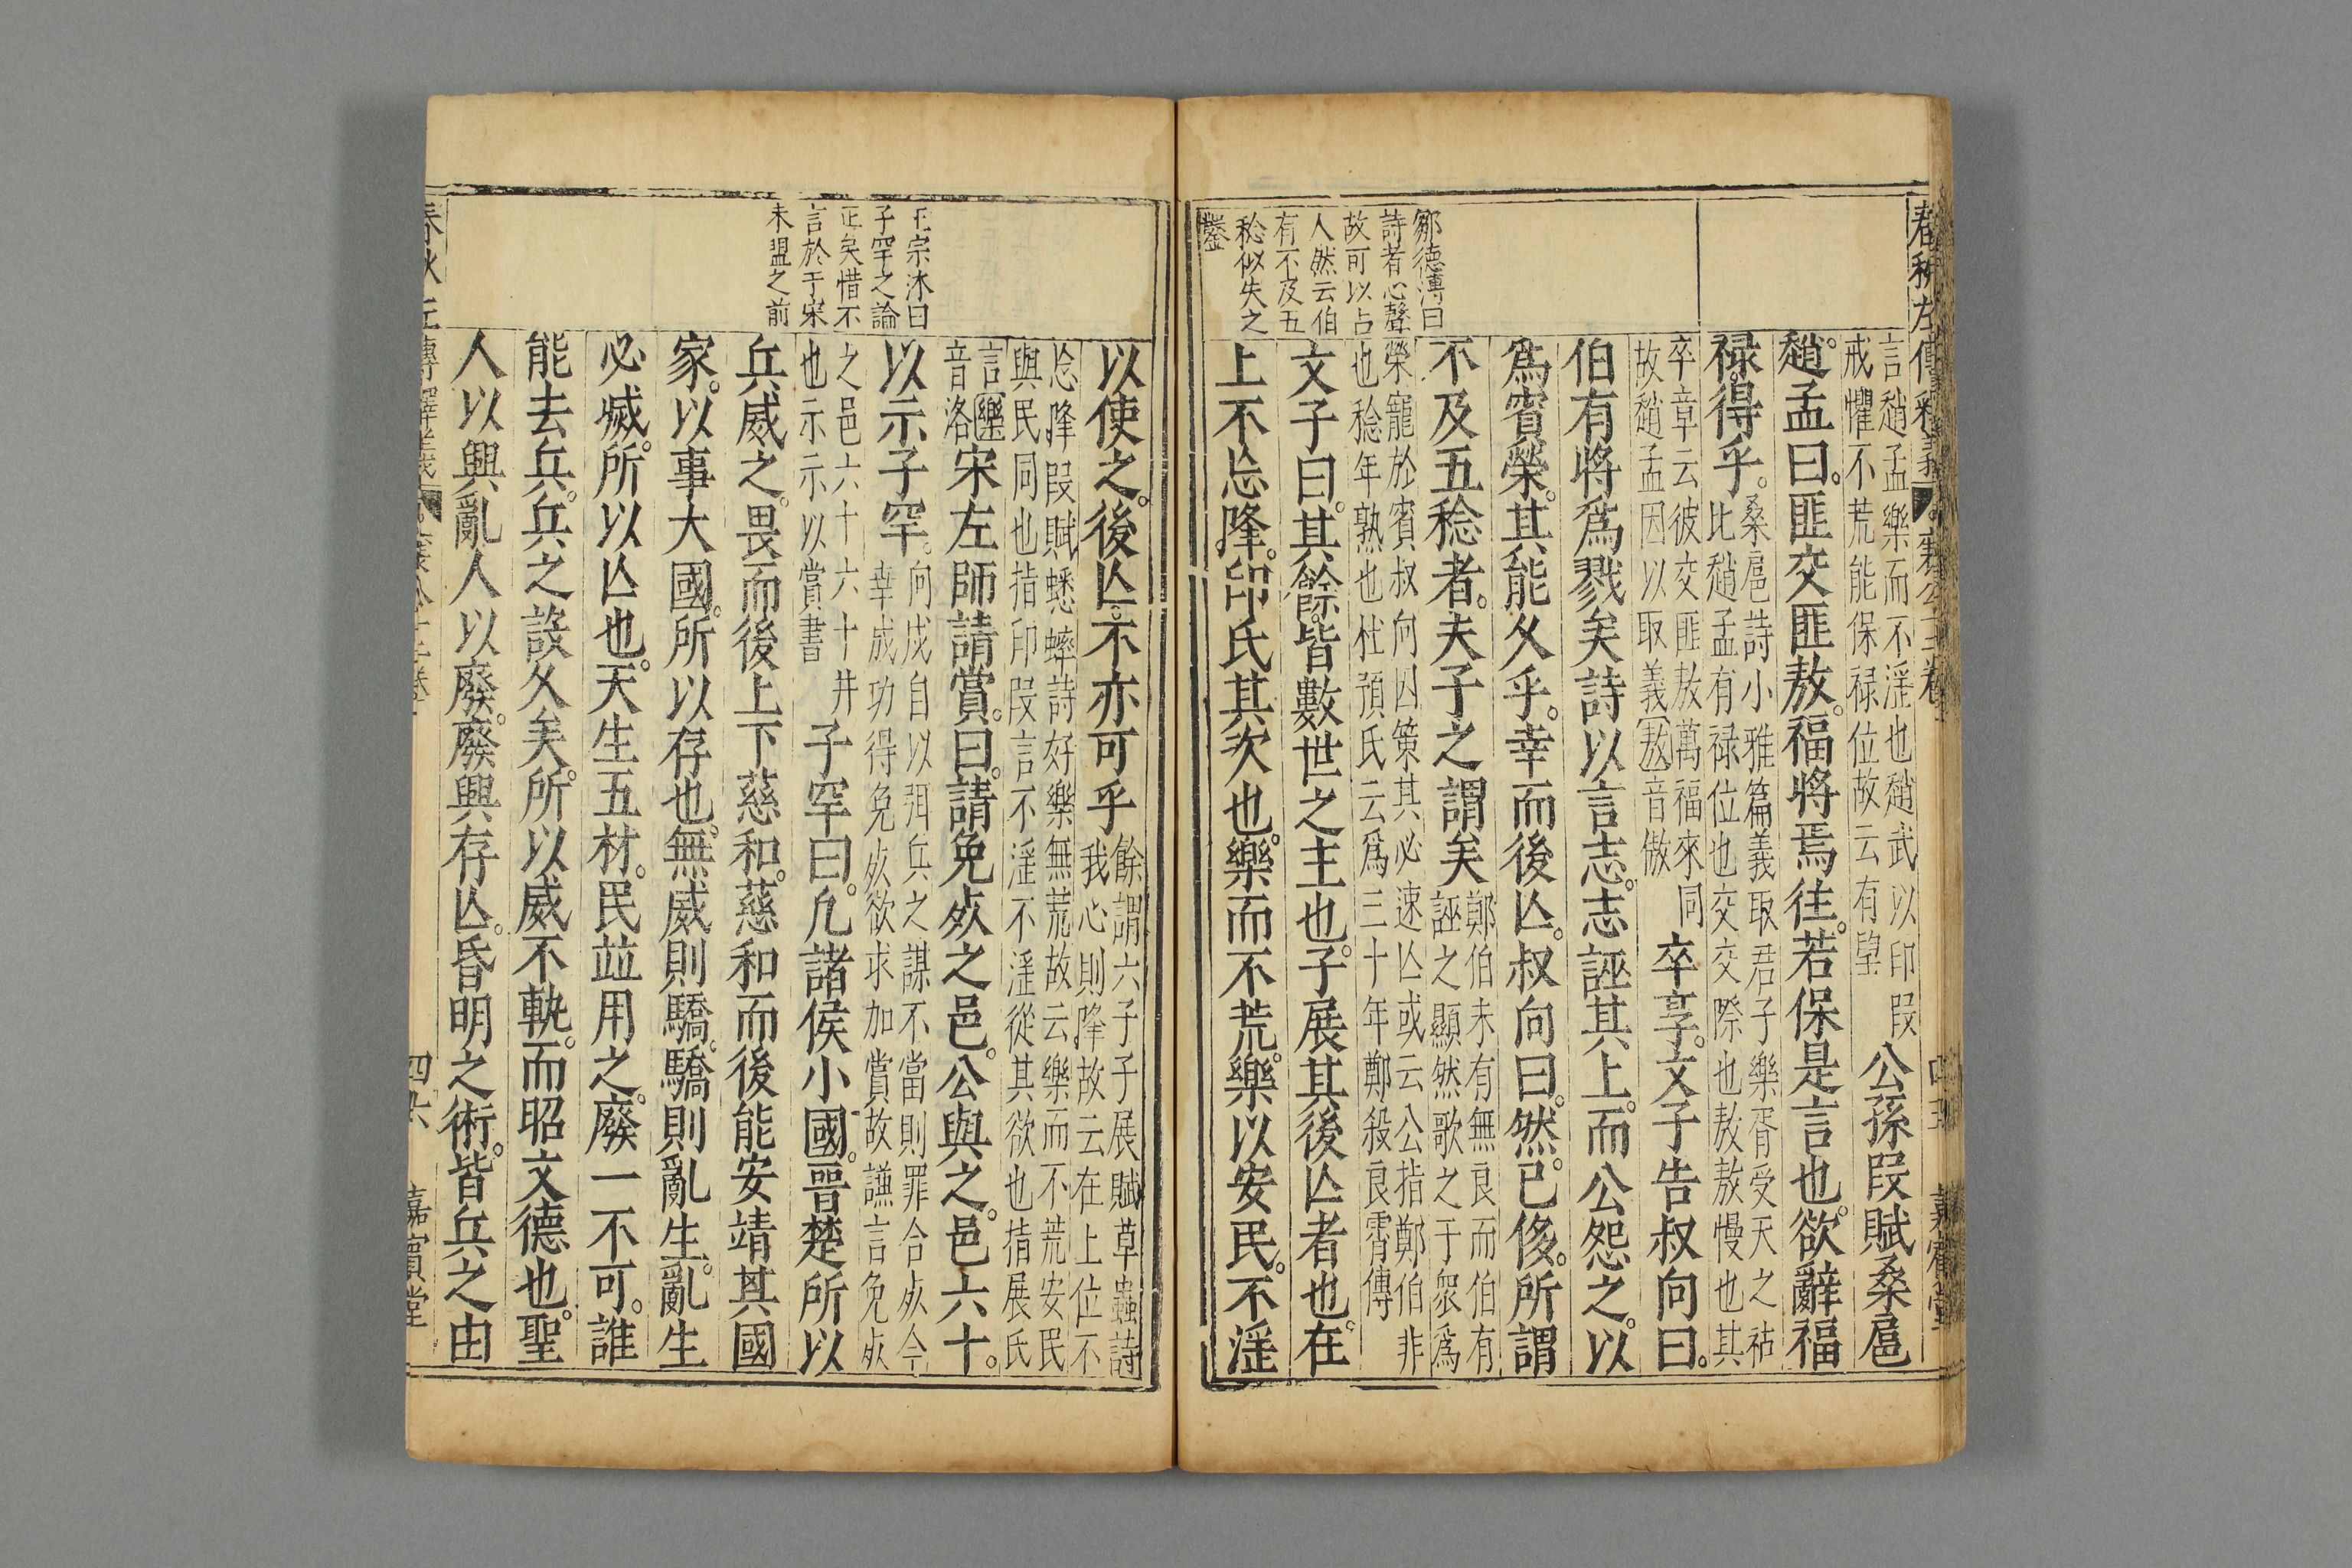 春秋左傳釋義 襄公三卷 四五 嘉賓堂
言趙孟樂而不淫也趙武以印叚
戒懼不荒能保禄位故云有望
公孫叚賦桑扈
趙孟曰。匪交匪敖。福將焉往。若保是言也。欲辭福
禄。得乎。
桑扈詩小雅篇義取君子樂胥受天之祜
比趙孟有禄位也交交際也敖敖慢也其
卒章云彼交匪敖萬福來同
故趙孟因以取義敖音傲
卒享。文子告叔向曰。
伯有將爲戮矣詩以言志。志誣其上。而公怨之。以
爲賓榮。其能久乎。幸而後亾。叔向曰。然。已侈。所謂
不及五稔者。夫子之謂矣
鄭伯未有無良而伯有
誣之顯然歌之于衆爲
榮寵於賓叔向因策其必速亾或云公指鄭伯非
也稔年熟也杜預氏云爲三十年鄭殺良霄傳
文子曰。其餘皆數世之主也。子展其後亾者也。在
上不忘降。印氏其次也。樂而不荒。樂以安民。不淫
鄒德溥曰
詩者心聲
故可以占
人然云伯
有不及五
稔似失之
鑿
以使之。後亾。不亦可乎
餘謂六子子展賦草蟲詩
我心則降故云在上位不
忘降叚賦蟋蟀詩好樂無荒故云樂而不荒安民
與民同也指印叚言不淫不淫從其欲也指展氏
言樂
音洛
宋左師請賞。曰。請免死之邑。公與之。邑六十。
以示子罕。
向戌自以弭兵之謀不當則罪合死今
幸成功得免死欲求加賞故謙言免死
之邑六十六十井
也示示以賞書
子罕曰。凢諸侯小國。晉楚所以
兵威之。畏而後上下慈和。慈和而後能安靖其國
家。以事大國。所以存也。無威則驕。驕則亂生。亂生
必滅。所以亾也。天生五材。民並用之。廢一不可。誰
能去兵。兵之設久矣。所以威不軌。而昭文德也。聖
人以興亂人以廢。廢興存亾。昏明之術。皆兵之由
王宗沐曰
子罕之論
正矣惜不
言於于宋
未盟之前
春秋左傳釋義 四六 嘉賓堂